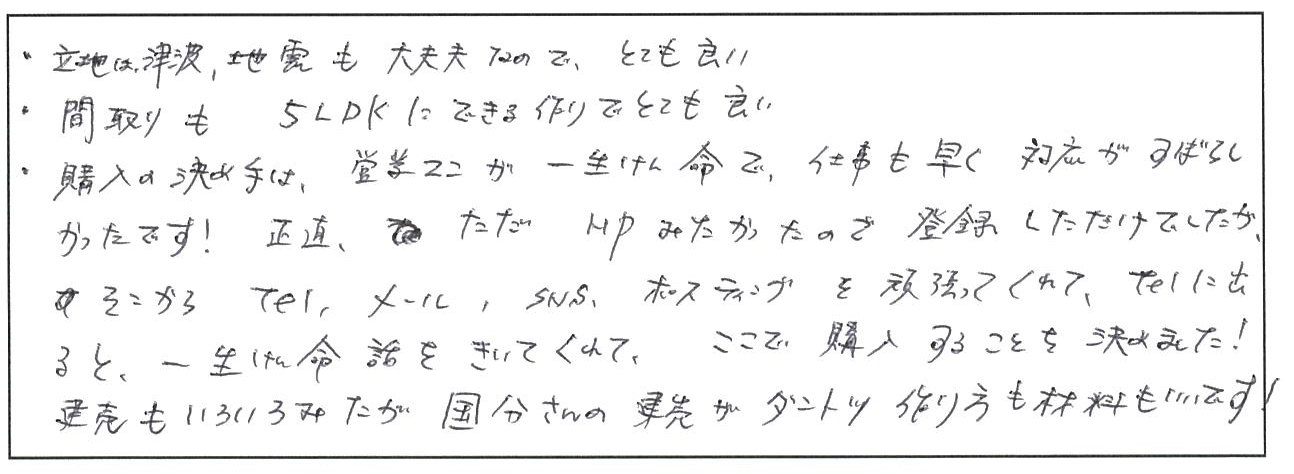 ・立地は、津波、地震も大丈夫なので、とても良い
・間取りも 5LDKにできる作りでとても良い
・購入の決め手は、営業マンが一生けん命で、仕事も早く 対応がすばらし
かったです! 正直、ただ HPみたかったので 登録しただけでしたが、
そこから Tel、メール、SNS、ポスティングを頑張ってくれて、Telに出
ると、一生けん命話をきいてくれて、ここで購入することを決めました!
建売もいろいろみたが 国分さんの建売がダントツ 作り方も材料もいいです!